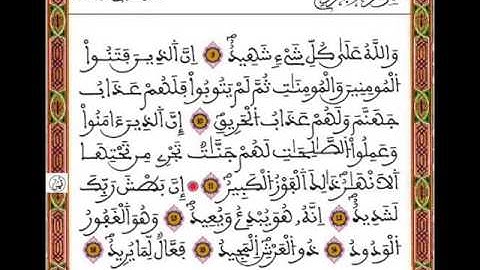 وَاللَّهُ عَلَىٰ كُلِّ شَيْءٍ شَهِيدٌ ۝ إِنَّ الذِينَ فَتَنُوا
الْمُومِنِينَ وَالْمُومِنَٰتِ ثُمَّ لَمْ يَتُوبُوا فَلَهُمْ عَذَابُ
جَهَنَّمَ وَلَهُمْ عَذَابُ الْحَرِيقِ ۝ إِنَّ الذِينَ ءَامَنُوا
وَعَمِلُوا الصَّٰلِحَٰتِ لَهُمْ جَنَّٰتٌ تَجْرِے مِن تَحْتِهَا
اَلَانْهَٰرُ ذَٰلِكَ الْفَوْزُ الْكَبِيرُ ۝ إِنَّ بَطْشَ رَبِّكَ
لَشَدِيدٌ ۝ اِنَّهُۥ هُوَ يُبْدِئُ وَيُعِيدُ ۝ وَهُوَ الْغَفُورُ
الْوَدُودُ ۝ ذُو الْعَرْشِ الْمَجِيدُ ۝ فَعَّالٌ لِّمَا يُرِيدُ ۝